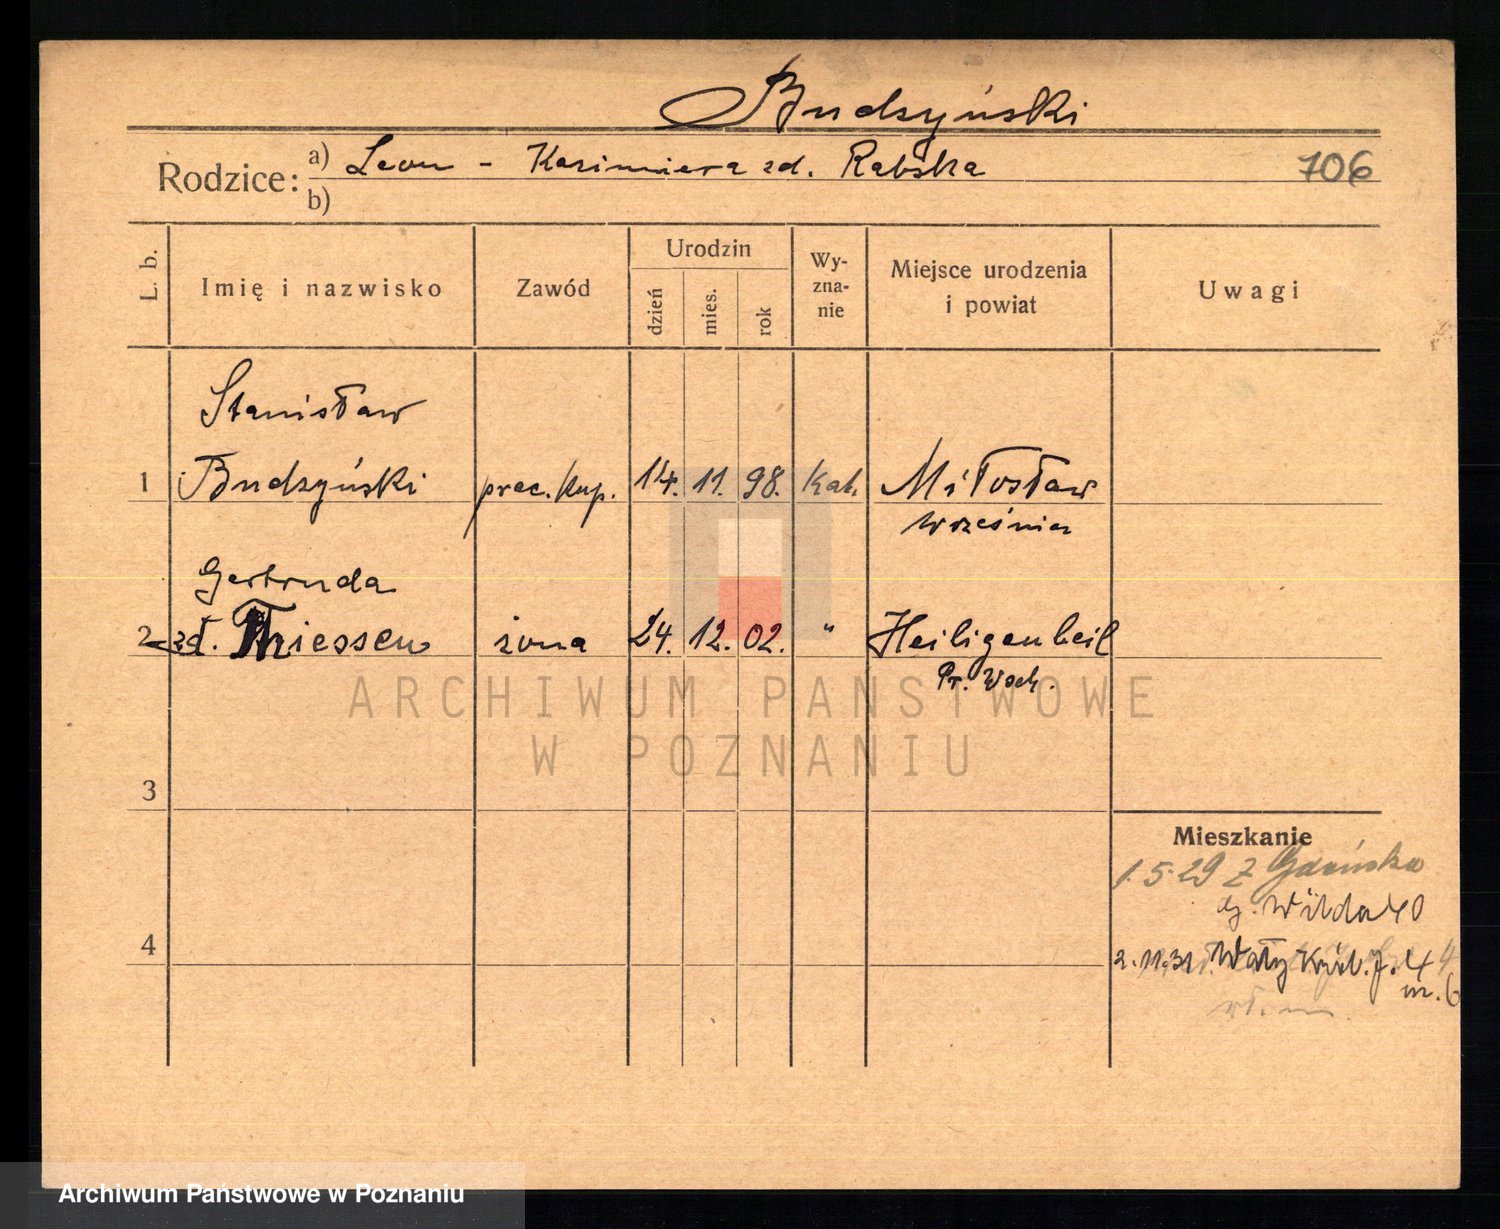 Budzyński
Rodzice: a) Leon - Kazimiera zd. Rabska 706
b)
L. b. Imię i nazwisko Zawód Urodzin dzień mies. rok Wyzna-nie Miejsce urodzenia i powiat Uwagi
Stanisław
1 Budzyński prac. kup. 14. 11. 98. Kat. Miłosław
Września
Gertruda
2 zd. Thiessen żona 24. 12. 02. " Heiligenbeil
Pr. Wsch.
ARCHIWUM PAŃSTWOWE
W POZNANIU
3
Mieszkanie
1.5.29 z Gdańska
Wilda 40
4
2.11.31 Wały Król. J. 4
m. 6
Archiwum Państwowe w Poznaniu